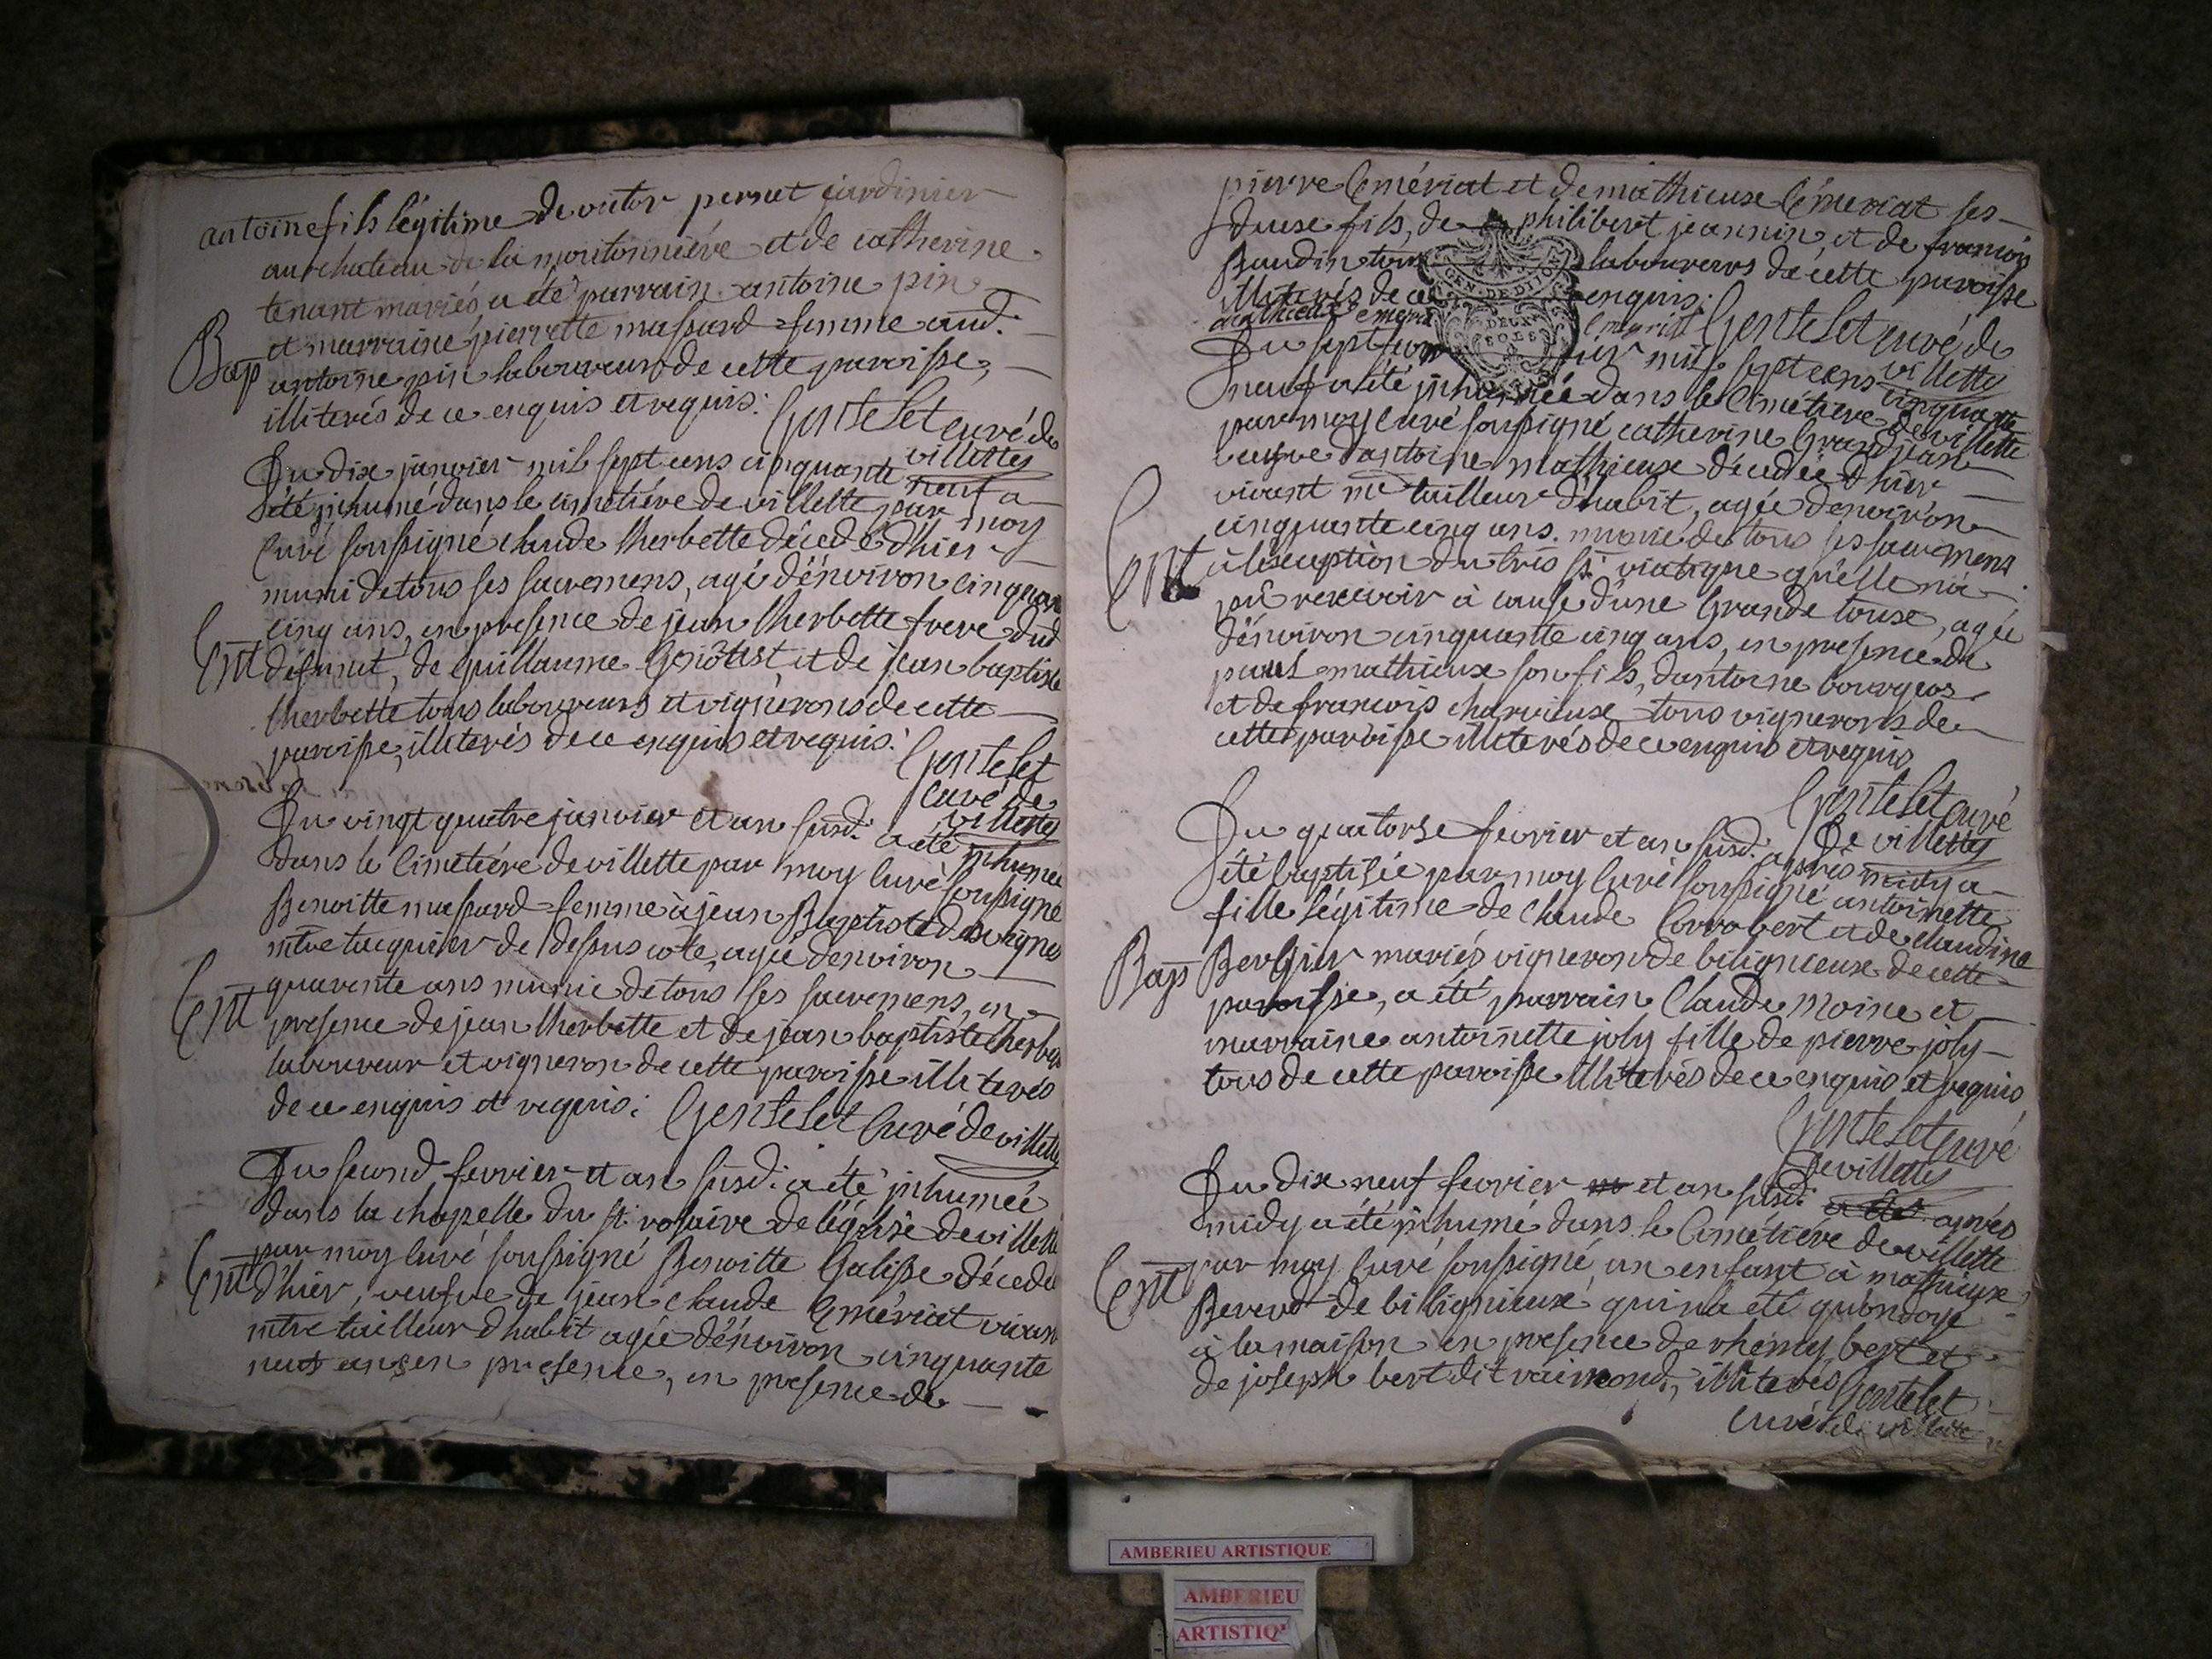 antoine fils légitime de victor pernet jardinier
au chateau de la moutonniére et de catherine
tenant mariés a été parrain antoine pin
et marraine pierrette massard femme aud.
Bap
antoine pin laboureur de cette paroisse,
illiterés de ce enquis et requis. Gentelet curé de
villette
Du dix janvier mil sept cens cinquante neuf a
été inhumé dans le cimetiére de villette par moy
curé soussigné claude lherbette décedé d'hier
muni de tous ses sacremens, agé d'énviron cinquante
cinq ans, en presence de jean lherbette frere dud
Ent
défunt, de guillaume et de jean baptiste
lherbette tous laboureurs et vignerons de cette
paroisse, illiterés de ce enquis et requis. Gentelet
curé de
villette
Du vingt quatre janvier et an susd. a été inhumée
dans le cimetiére de villette par moy curé soussigné
Benoitte massard femme à jean Baptiste desvignes
mtre de dessus cote, agée denviron
Ent
quarente ans munie de tous ses sacremens, en
presence de jean lherbette et de jean baptiste lherbette
laboureur et vigneron de cette paroisse illiterés
de ce enquis et requis. Gentelet Curé de villette
Du second fevrier et an susd. a été inhumée
dans la chapelle du st. rosaire de léglise de villette
par moy curé soussigné Benoitte Galisse décedée
Ent
d'hier, veufve de jean claude Emériat vivant
mtre tailleur d'habit agée d'énviron cinquante
neuf ans en presence, en presence de
pierre Emériat et de mathieuse Emeriat ses
deux fils, de philibert jeannin, et de francois
Baudin tous laboureurs de cette paroisse
illiterés de ce enquis.
Gentelet curé de
villette
Du sept fevrier mil sept cens cinquante
neuf a été inhumée dans le cimétiere de villette
par moy curé soussigné catherine Grandjean
veufve d'antoine mathieux décedée d'hier
vivant me tailleur d'habit, agée denviron
cinquante cinq ans. munie de tous ses sacremens
Ent
à léxception du tres st. viatique qu'elle n'a
pû recevoir à cause d'une Grande touse, agée
d'énviron cinquante cinq ans, en presence de
paul mathieux son fils, d'antoine bourgeos
et de francois charvieux tous vignerons de
cette paroisse illiterés de ce enquis et requis
Gentelet curé
De villette
Du quatorse fevrier et an susd. aprés midy a
été baptisée par moy curé soussigné antoinette
fille légitime de claude Corrobert et de claudine
Bap
Berthier mariés vigneron de bilignieux de cette
paroisse, a été parrain Claude Moine et
marraine antoinette joly fille de pierre joly
tous de cette paroisse illiterés de ce enquis et requis
Gentelet curé
De villette
Du dix neuf fevrier et an susd. aprés
midy a été inhumé dans le Cimétiére de villette
Ent
par moy curé soussigné, un enfant à mathieux
Reverd de bilignieux qui n'a été qu'ondoyé
à la maison en presence de rhemy bert et
de joseph bert dit raimond, illiterés Gentelet
curé de villette
GEN. DE DIJON
DEUX
SOLS
AMBERIEU ARTISTIQUE
AMBERIEU
ARTISTIQ